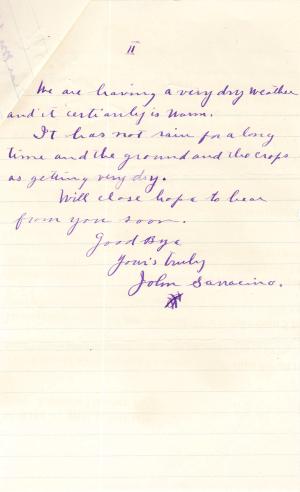 II
We are having a very dry weather
and it certianly is warm.
It has not rain for a long
time and the ground and the crops
as getting very dry.
Will close hope to hear
from you soon.
Good Bye
Your's truly
John Sarracino.